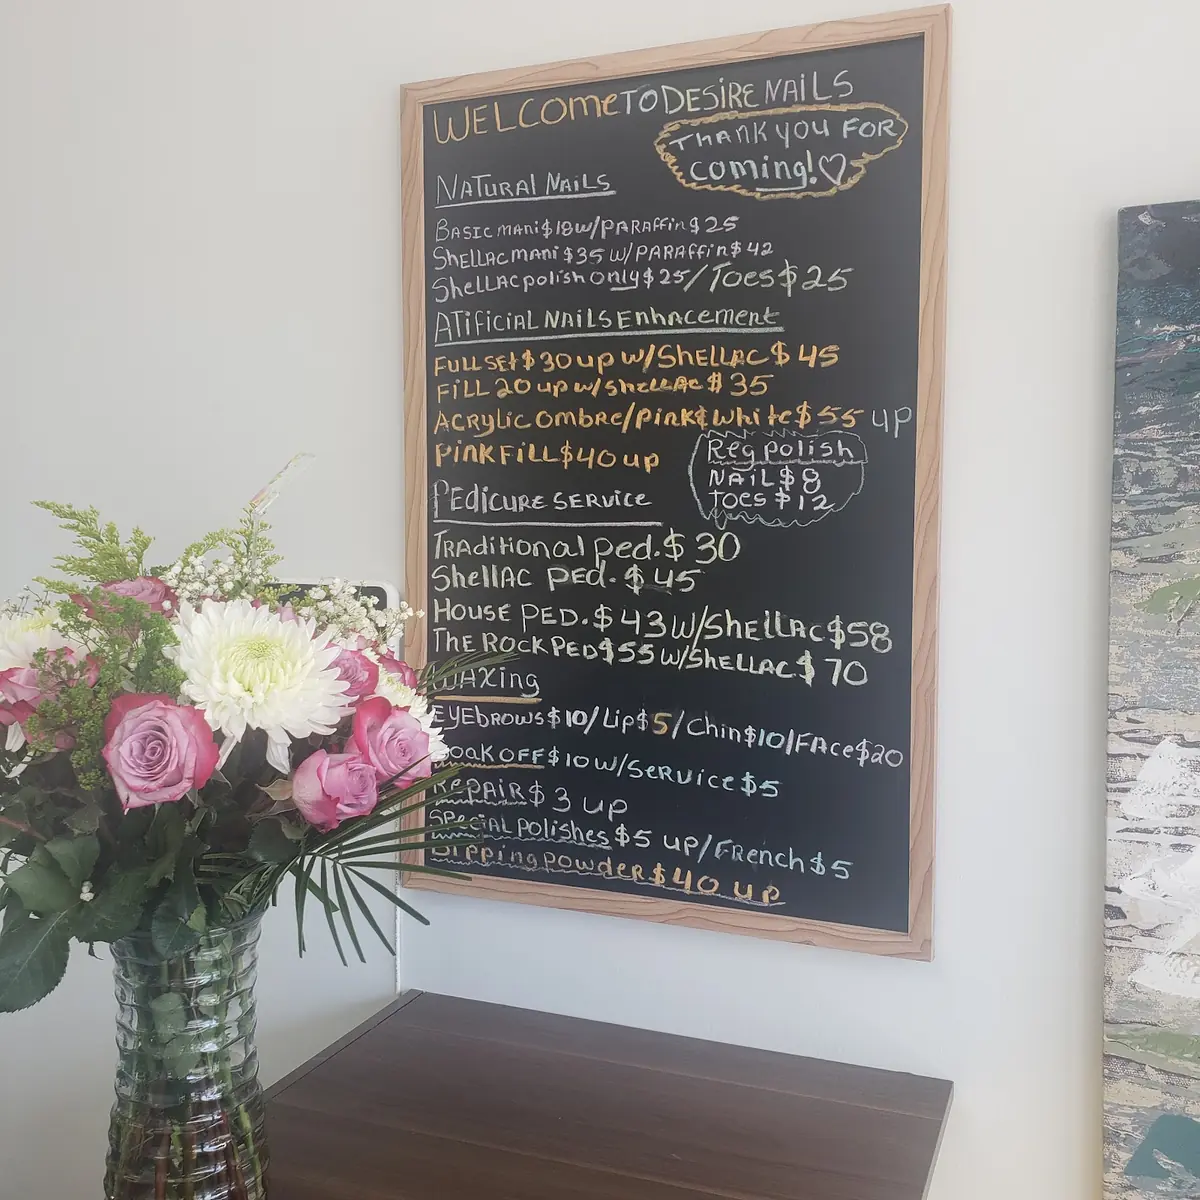 WELCOME TO DESIRE NAILS
THANK YOU FOR
coming!♡
NATURAL NAILS
BASIC mani $18 w/PARAffin $25
ShellAC mani $35 w/ PARAffin $42
ShellAC polish only $25/Toes $25
ATificiAL NAILS Enhacement
Full set $30 up w/ShellAC $45
Fill 20 up w/shellAC $35
ACRYLIC OMBRE/PINK & White $55 up
PINK Fill $40 up
Reg polish
NAIL $8
toes $12
PEDICURE SERVICE
TRAditional ped. $30
ShellAC PED. $45
HOUSE PED. $43 w/ShellAC $58
THE ROCK PED $55 w/ShellAC $70
WAXing
EYEbROWS $10/Lip $5/Chin $10/FACE $20
Soak OFF $10 w/SeRvice $5
REPAIR $3 up
SPECIAL polishes $5 up/FRench $5
Dipping powder $40 up